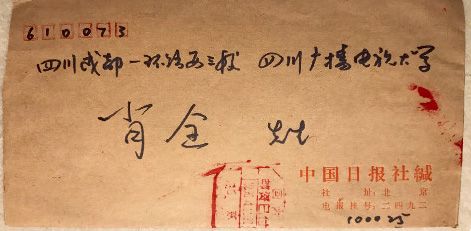 610073
四川成都一环路西三段 四川广播电视大学
肖全 先生
中国日报社缄
社址:北京
电报挂号:二四九二
100025